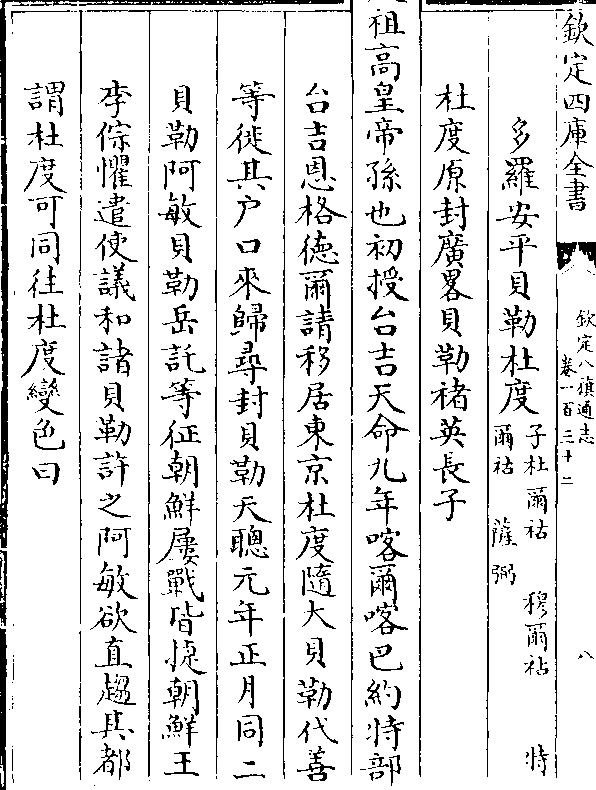 欽定四庫全書
欽定八旗通志
卷一百三十二
八
多羅安平貝勒杜度 子杜爾祜 穆爾祜 特
爾祜 薩弼
杜度原封廣畧貝勒褚英長子
祖高皇帝孫也初授台吉天命九年喀爾喀巴約特部
台吉恩格德爾請移居東京杜度隨大貝勒代善
等徙其户口來歸尋封貝勒天聰元年正月同二
貝勒阿敏貝勒岳託等征朝鮮屢戰皆捷朝鮮王
李倧懼遣使議和諸貝勒許之阿敏欲直趨其都
謂杜度可同往杜度變色曰